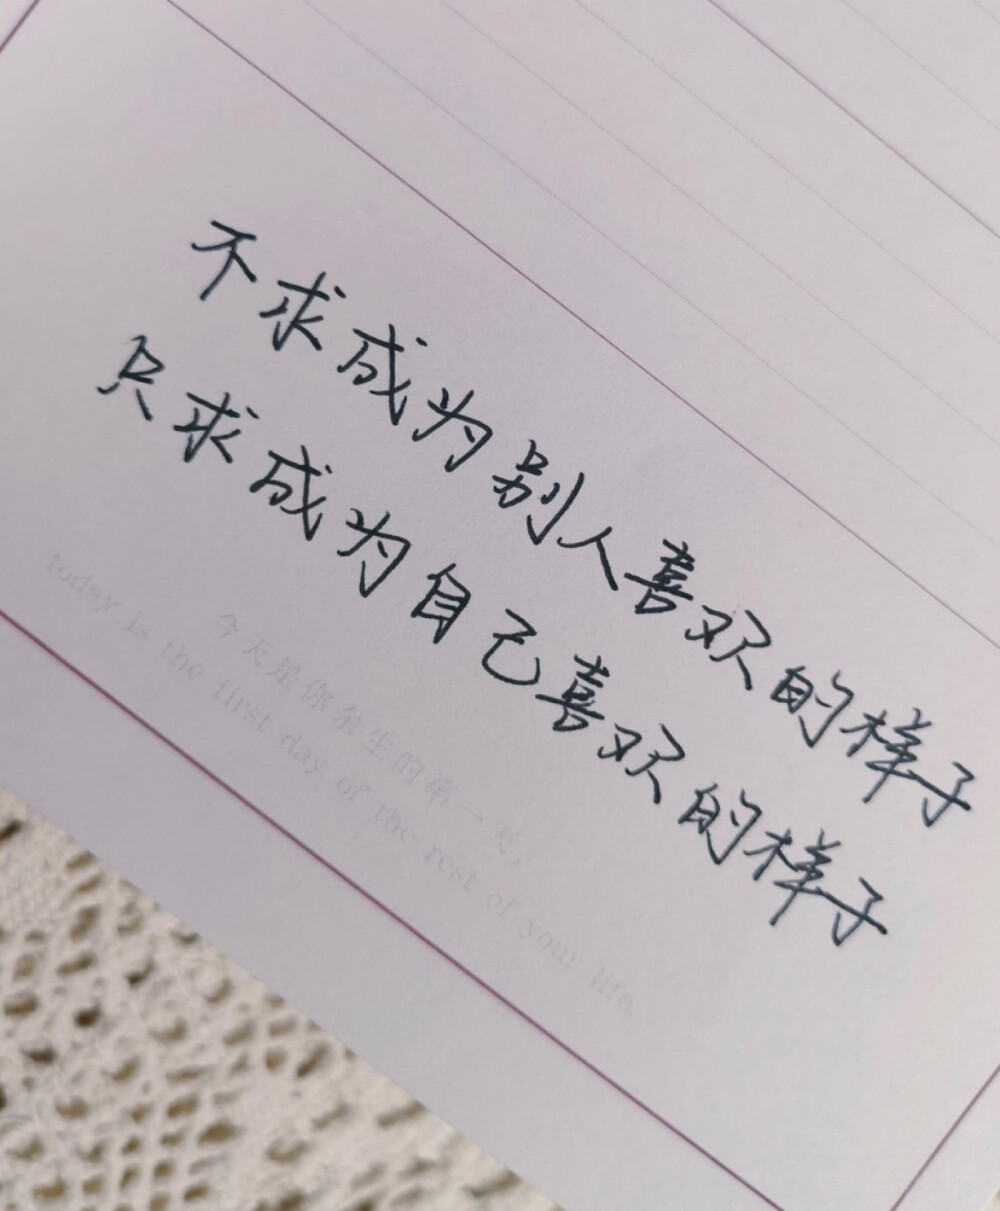 不求成为别人喜欢的样子
只求成为自己喜欢的样子
今天是你余生的第一天，
today is the first day of the rest of your life.